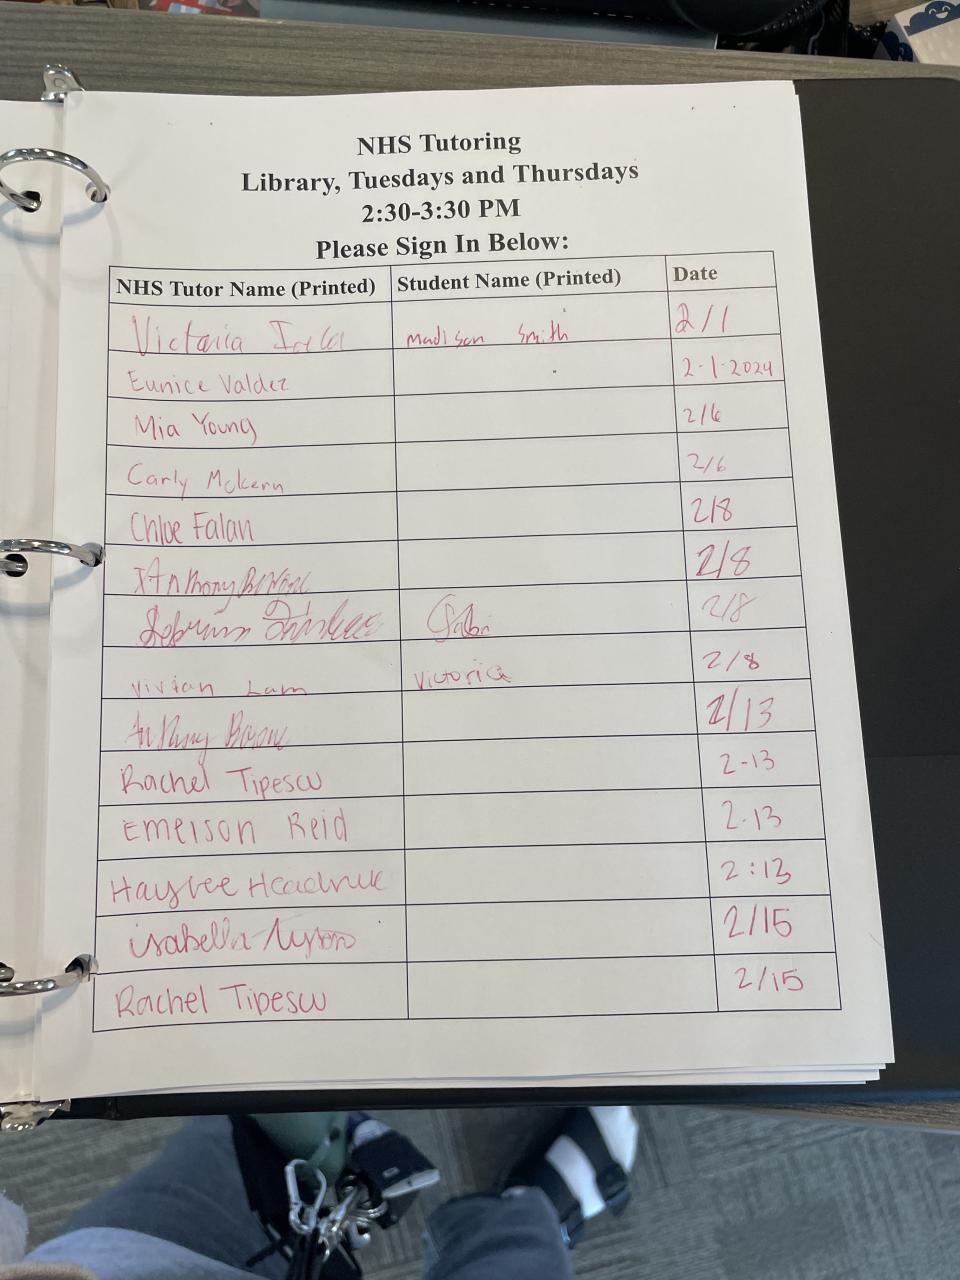 NHS Tutoring
Library, Tuesdays and Thursdays
2:30-3:30 PM
Please Sign In Below:
NHS Tutor Name (Printed) Student Name (Printed) Date
Victoria madison Smith 2/1
Eunice Valdez 2-1-2024
Mia Young 2/6
Carly McKenn 2/6
Chloe Falan 2/8
Anthony 2/8
Gabi 2/8
Vivian Lam Victoria 2/8
Anthony 2/13
Rachel Tipescu 2-13
Emerson Reid 2-13
Haylee 2:13
isabella 2/15
Rachel Tipescu 2/15